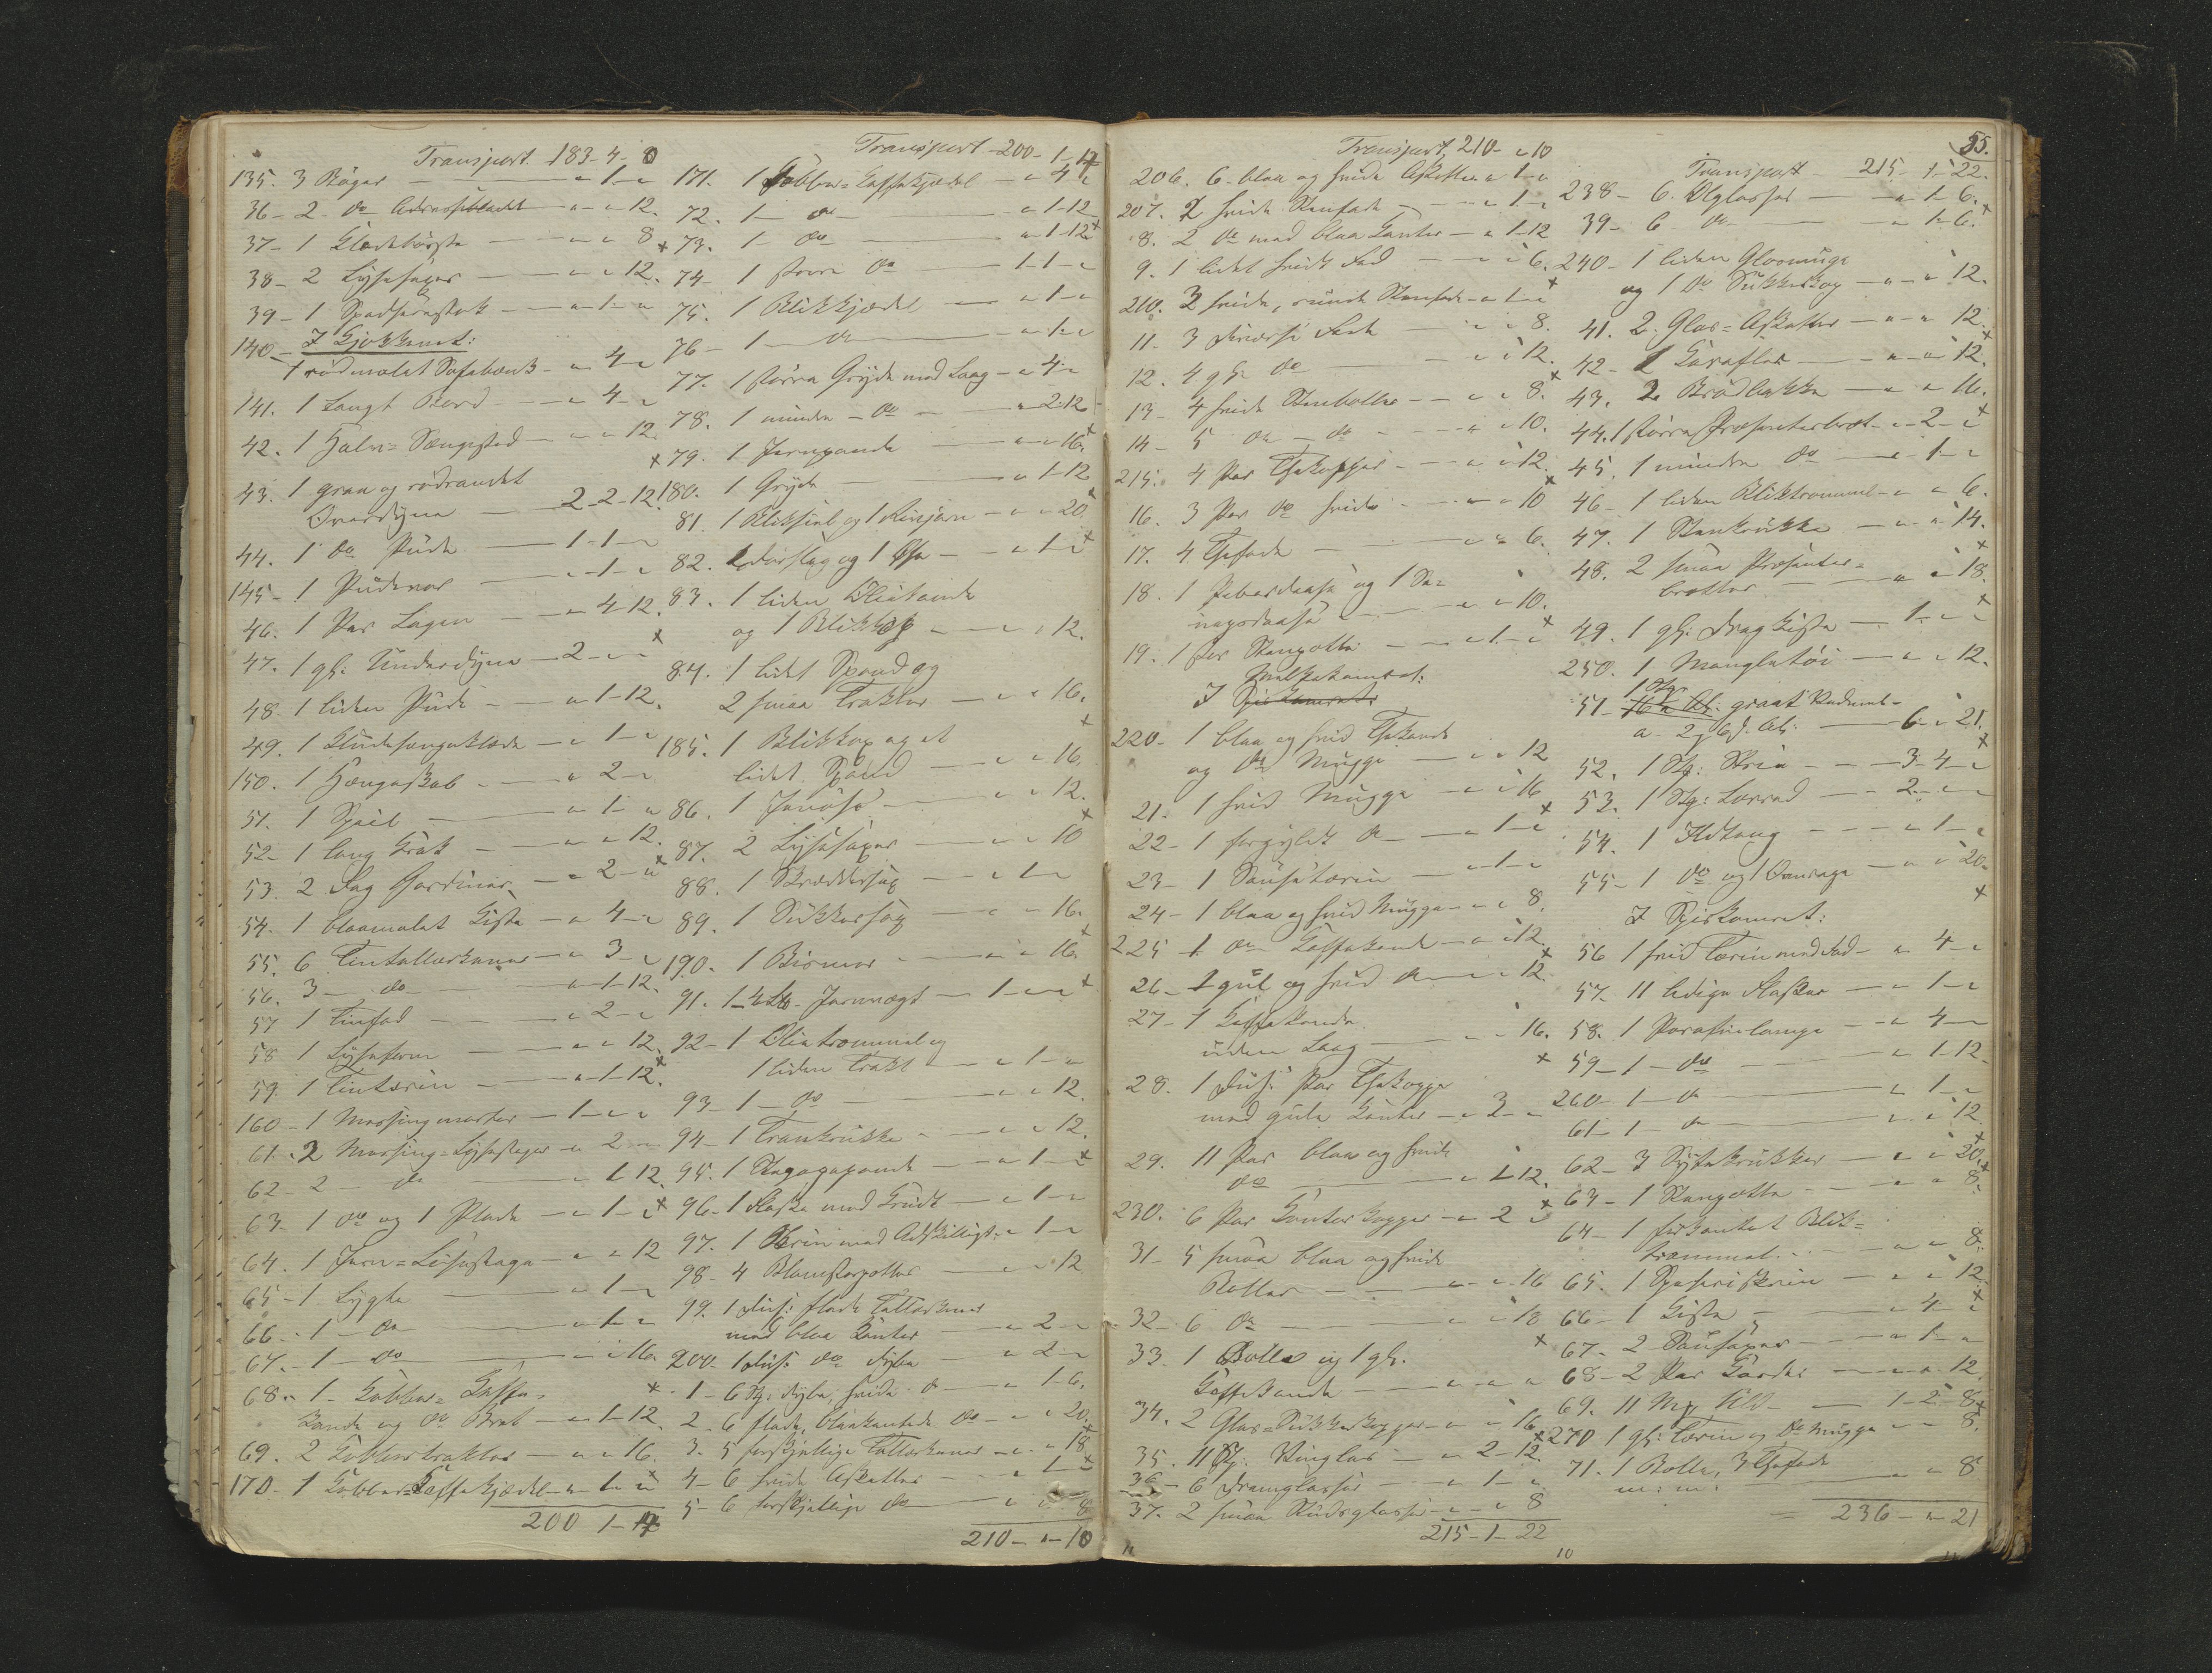 Transport 183-4-8
135. 3 Bøger - - 1 -
36 - 2 do Adresseblade - - 12.
37 - 1 Klædebørste - - 8
38 - 2 Lysesaxer - - 12.
39 - 1 Spadserestok - 1 -
140 - I Kjøkkenet:
1 rødmalet Sofabænk - 4 -
141. 1 Langt Bord - 4 -
42. 1 Halm=Sengested - - 12.
43. 1 graa og rødrandet
Overdyne - 2-2-12.
44. 1 do Pude - 1-1-
145 - 1 Pudevar - 1 -
46. 1 Par Lagen - 4-12.
47. 1 gl: Underdyne - 2 - -
48. 1 liden Pude - 1-12.
49. 1 - 1 -
150. 1 Hængeskab - 2 -
51. 1 Speil - 1 -
52 - 1 lang Krak - - 12.
53. 2 Fag Gardiner - 2 -
54. 1 blaamalet Kiste - 4 -
55. 6 Tintallerkener - 3 -
56. 3 - do - 1-12.
57 1 Tinfad - 2 -
58 1 Lyseform - - 12.
59. 1 Tinterin - 1-12.
160 - 1 Messingmorter - 1 - -
61. 2 Messing=Lysestager - 2 -
62 - 2 - do - 1-12.
63 - 1 do og 1 Plade - 1 -
64. 1 Jern=Lysestage - - 12
65 - 1 Lygte - 1 -
66 - 1 - do - 1 -
67. - 1 - do - 16.
68. - 1 - Kobber=Kaffe=
kande og do Bret - 1-12.
69. 2 Kobbertrakter - - 16.
170 - 1 Kobber=Kaffekjedel - 1 -
200 1-4
Transport - 200-1-4
171. 1 Kobber=Kaffekjedel - 4 -
72. 1 - do - 1-12
73. 1 - do - 1-12
74 - 1 større do - 1-1 -
75. 1 Blikkjedel - 1 -
76 - 1 - do - 1 -
77. 1 større Gryde med Laag - 4 -
78. 1 mindre - do - 2-12
79. 1 Jernpande - - 16.
180. 1 Gryde - 1-12
81. 1 og 1 Rivjern - - 20
82. 1 Dørslag og 1 Øse - 1 -
83. 1 liden
og 1 - 12.
84. 1 lidet Spand og
2 smaa Trakter - - 16.
185. 1 Blikkop og et
lidet Spand - - 16.
86. 1 - 12.
87. 2 Lysesaxer - - 10
88. 1 Skræddersax - 1 -
89. 1 Sukkersax - - 16.
190. 1 Bismer - - 16.
91. 1 - Jernvægt - 1 - -
92 - 1 Olietrommel og
1 liden Trakt - 1 -
93 - 1 - do - - 12.
94 - 1 Trankrukke - - 12.
95. 1 Stegepande - 1 -
96 - 1 Flaske med Krudt - 1 -
97. 1 Skrin med Adskilligt - 1 -
98 - 4 Blomsterpotter - - 12
99. 1 Dus: flade Tallerkener
med blaa Kanter - 2 -
200 - 1 Dus: do dybe - 2 -
1 - 6 St: dybe hvide do - 1-6.
2 - 6 flade, blaakantede do - - 20.
3. 5 forskjellige Tallerkener - - 18
4 - 6 hvide Asketter - 1 -
5 - 6 forskjellige do - - 8
210 - - 10
Transport, 210 - 10
206. 6 blaa og hvide Asketter - 1 -
207. 2 hvide Stenfade - 1 -
8. 2 do med blaa Kanter - 1-12
9. 1 lidet hvidt Fad - - 6.
210. 3 hvide, runde Stenfade - 1 -
11. 3 Diverse Fade - - 8.
12. 4 gl: do - - 12.
13 - 4 hvide Stenboller - - 8.
14 - 5 do - do - - 10.
215. 4 Par Thekopper - - 12.
16. 3 Par do hvide - - 10
17. 4 Thefade - - 6.
18. 1 Peberdaase og 1 Se=
nepsdaase - - 10.
19. 1 stor Stenpotte - 1 -
Melkekamret.
I Spiskamret:
220 - 1 blaa og hvid Thekande
og do Mugge - - 12
21. 1 hvid Mugge - - 16
22 - 1 forgyldt do - 1 -
23 - 1 Sauseterin - 1 -
24 - 1 blaa og hvid Mugge - - 8.
225 - 1 do Kaffekande - - 12.
26 - 1 gul og hvid do - - 12.
27 - 1 Kaffekande
uden Laag - - 16.
28. 1 Dus: Par Thekopper
med gule Kanter - 3 -
29. 11 Par blaa og hvide
do - 1-12.
230. 6 Par Kanterkopper - 2 -
31 - 5 smaa blaa og hvide
Boller - - 16
32 - 6 do - - 18
33. 1 Bolle og 1 gl.
Kaffekande - - -
34. 2 Glas=Sukkerkopper - - 16.
35. 11 St: Vinglas - 2-12.
36 - 6 Dramglasse - 1 -
37. 2 smaa - 8
215-1-22
55.
Transport - 215-1-22.
238 - 6 Ølglasser - 1-6.
39 - 6 do - 1-6.
240 - 1 liden Glasmugge
og 1 do Sukkerkop - - 12.
41. 2. Glas=Asketter - - 12.
42 - 1 Karaffel - - 12.
43. 2 Brødbakke - - 16.
44. 1 større Præsenterbret - 2 -
45. 1 mindre do - 1 -
46 - 1 liden Bliktrommel - - 6.
47. 1 Stenkrukke - - 14.
48. 2 smaa Præsenter=
bretter - - 18.
49. 1 gl: Dragkiste - 1 - -
250. 1 Mangletøi - - 12.
51 - graat Vadmel -
a - 6 - 21.
52. 1 St: Strie - 3-4 -
53. 1 St: Lerred - 2 - -
54. 1 Ildtang - 1 -
55 - 1 do og 1 Ovnrage - - 20.
I Spiskamret:
56 1 hvid Terin med Fad - 4 -
57. 11 ledige Flasker - 1 -
58. 1 Parafinlampe - 4 -
59 - 1 - do - 1-12.
260 - 1 - do - 1 -
61 - 1 - do - - 12.
62 - 3 Syltekrukker - - 20.
63 - 1 Stenpotte - - 8.
64 - 1 firkantet Blik=
trommel - - 8.
65. 1 - 12.
66 - 1 Kiste - 4 -
67. 2 Sausaxer - 1 -
68 - 2 Par Karder - - 12.
69. 11 Mk Uld - 1-2-8
270 1 gl: Terin og do Mugge - - 8.
71. 1 Bolle, 3 Thefade
m: m: - - 8
236 - - 21